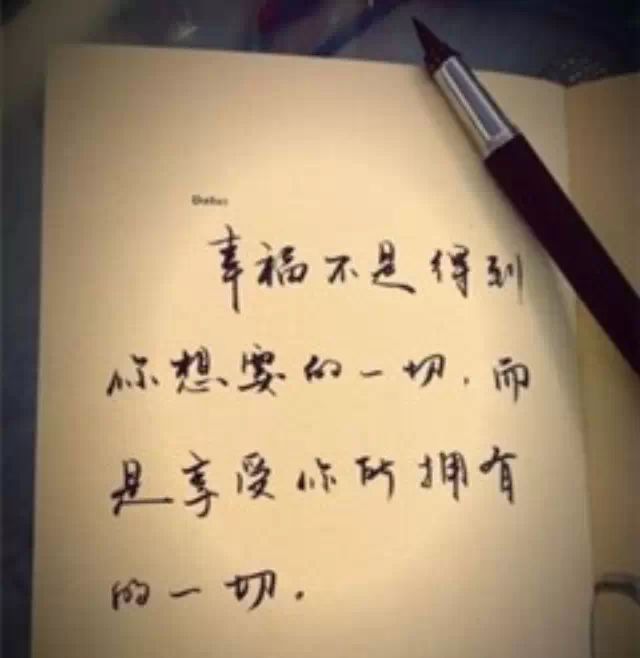 幸福不是得到
你想要的一切，而
是享受你所拥有
的一切．